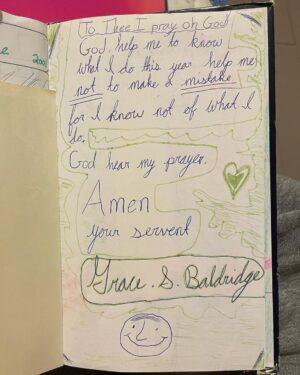 To Thee I pray oh God
God, help me to know
what I do this year help me
not to make a mistake
for I know not of what I
do.
God hear my prayer.
Amen
your servent
Grace. S. Baldridge